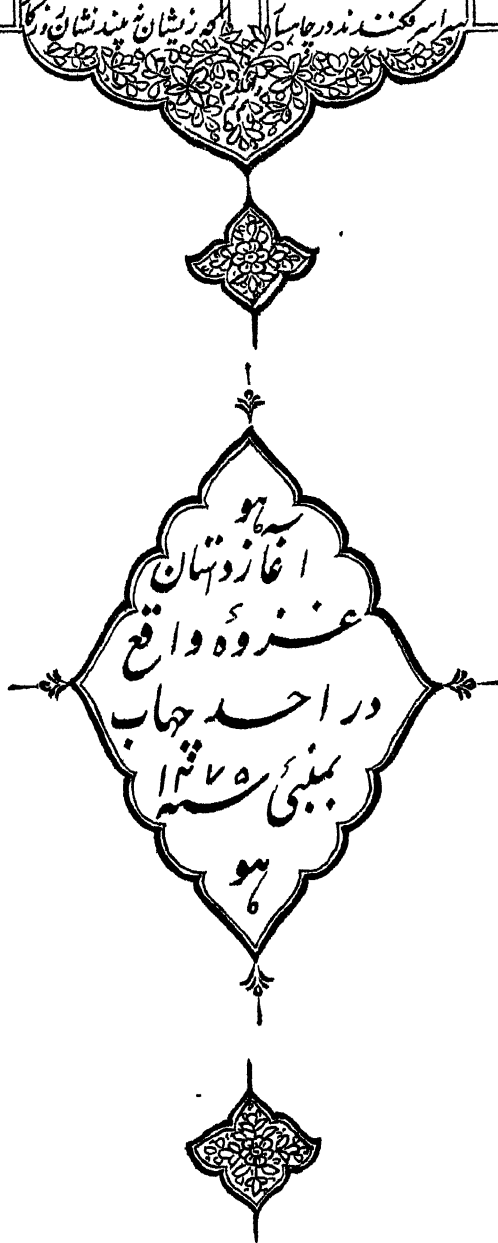 سراسر فکندند در چاهسار که زیشان نه بینند نشان روزگار
هو
اغاز داستان
غزوهٔ واقع
در احد چهاپ
بمبئی سنه ۱۲۷۵
هو